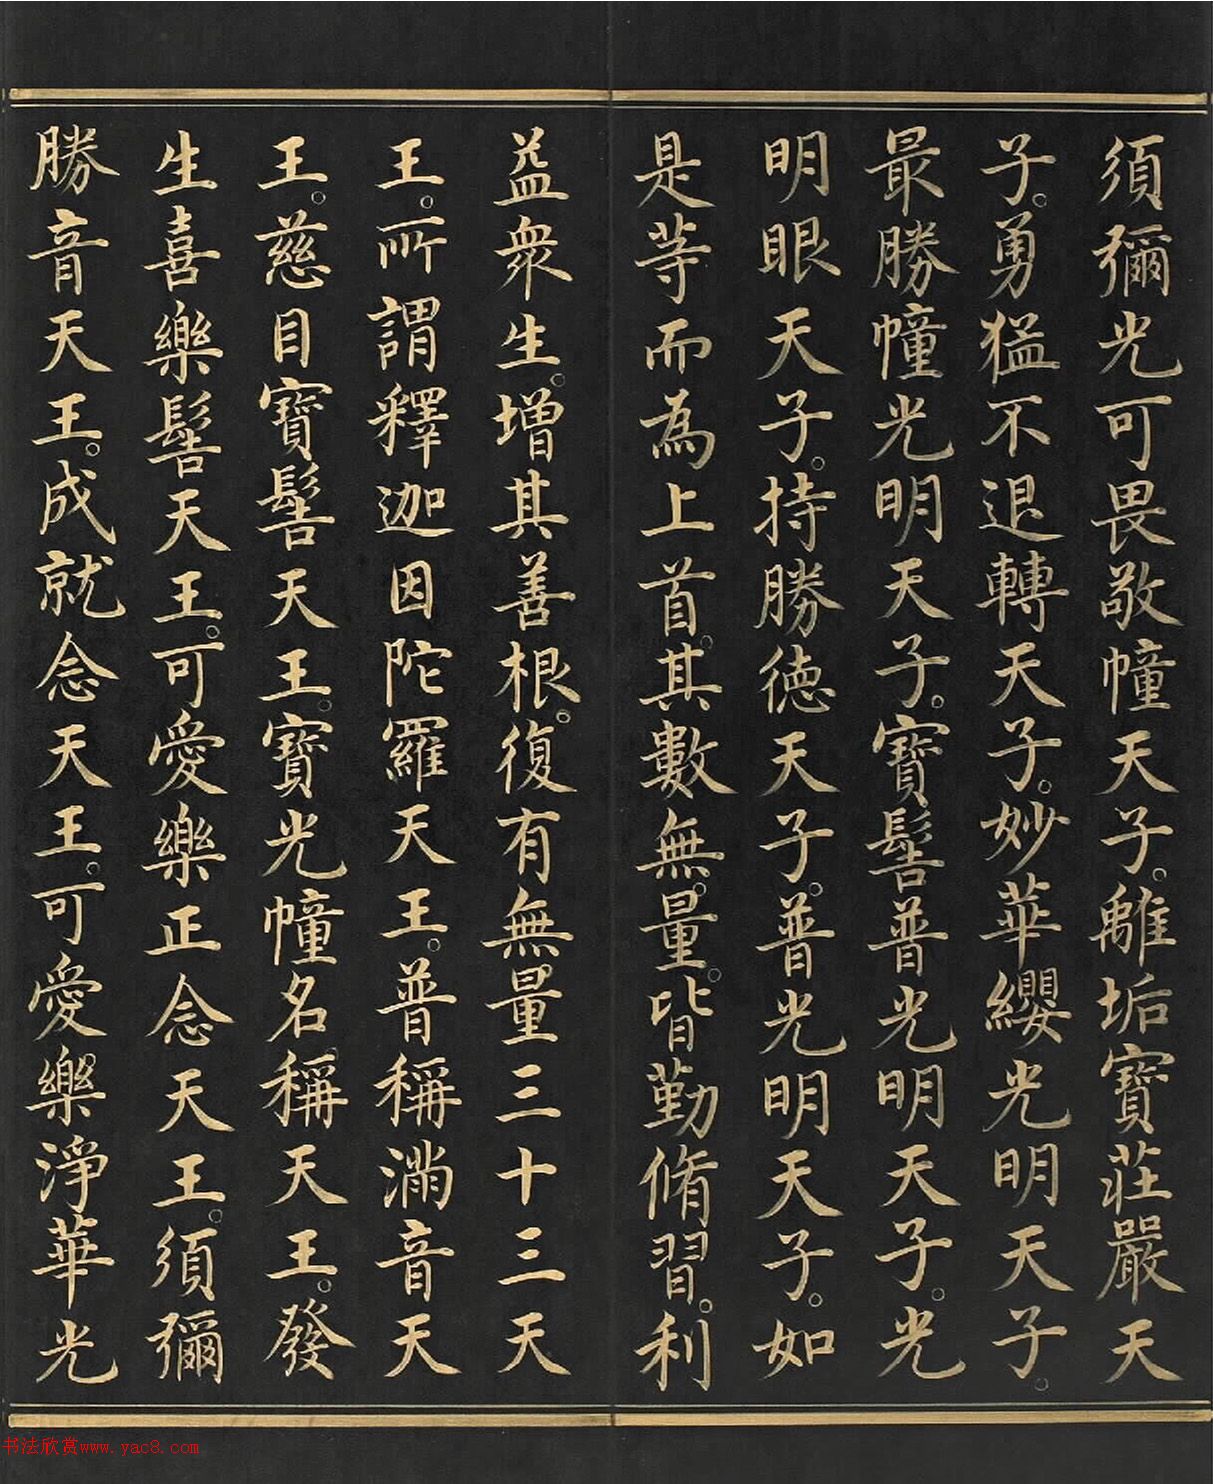 須彌光可畏敬幢天子。離垢寶莊嚴天
子。勇猛不退轉天子。妙華纓光明天子。
最勝幢光明天子。寶髻普光明天子。光
明眼天子。持勝德天子。普光明天子。如
是等而為上首。其數無量。皆勤脩習。利
益衆生。增其善根。復有無量三十三天
王。所謂釋迦因陀羅天王。普稱滿音天
王。慈目寶髻天王。寶光幢名稱天王。發
生喜樂髻天王。可愛樂正念天王。須彌
勝音天王。成就念天王。可愛樂淨華光
书法欣赏www.yac8.com